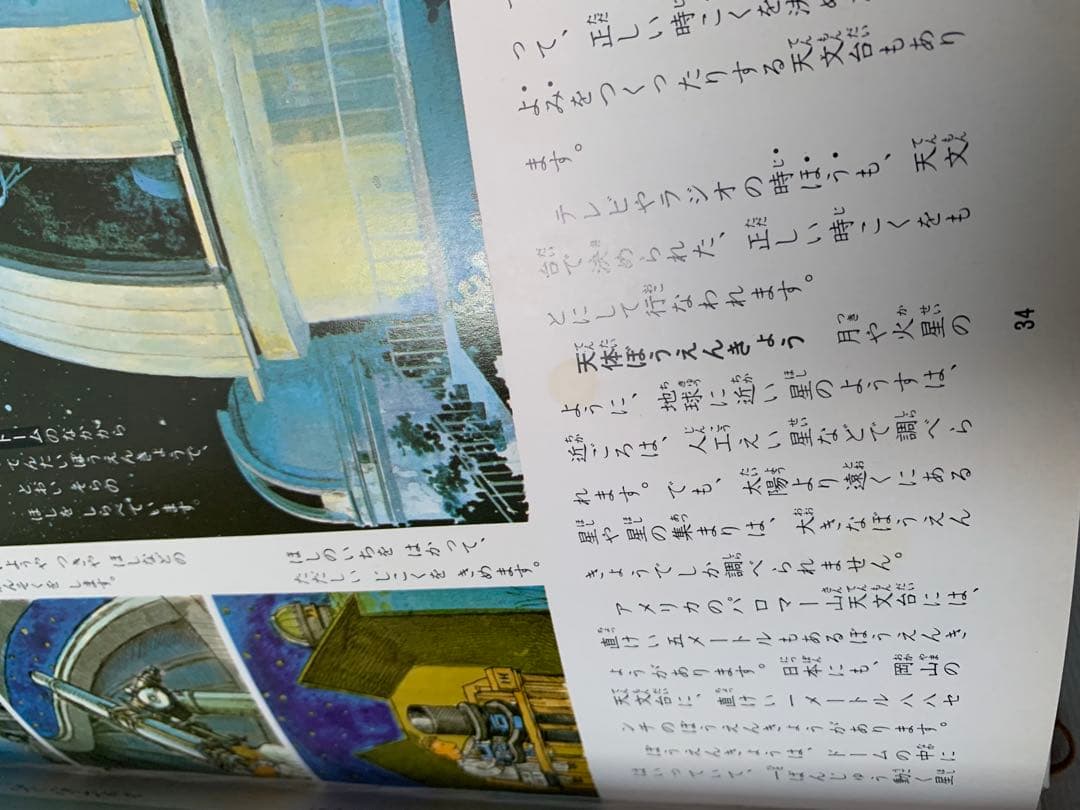 って、正しい時こくを決め
よみをつくったりする天文台もあり
ます。
テレビやラジオの時ほうも、天文
台で決められた、正しい時こくをも
とにして行なわれます。
天体ぼうえんきょう 月や火星の
ように、地球に近い星のようすは、
近ごろは、人工えい星などで調べら
れます。でも、太陽より遠くにある
星や星の集まりは、大きなぼうえん
きょうでしか調べられません。
アメリカのパロマー山天文台には、
直けい五メートルもあるぼうえんき
ょうがあります。日本にも、岡山の
天文台に、直けい一メートル八八セ
ンチのぼうえんきょうがあります。
ぼうえんきょうは、ドームの中に
はいっていて、一ばんじゅう動く星
34
ドームの なかから
てんたいぼうえんきょうで、
とおい そらの
ほしを しらべています
ほしの いちを はかって、
ただしい じこくを きめます。
つきや ほしなどの
そくを します。